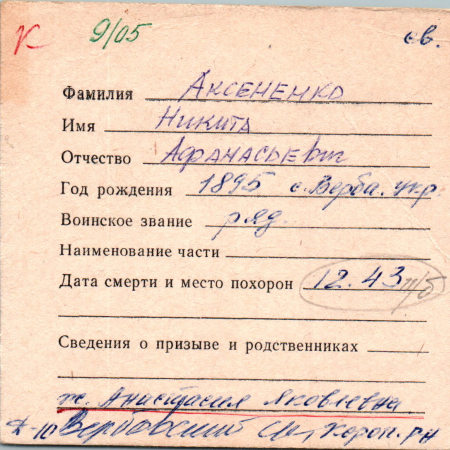 К 9/05 св.
Фамилия Аксененко
Имя Никита
Отчество Афанасьевич
Год рождения 1895 с. Верба. укр.
Воинское звание ряд.
Наименование части
Дата смерти и место похорон 12.43 п/б
Сведения о призыве и родственниках
ж. Анастасия Яковлевна
Вербовский с/с, Короп. рн